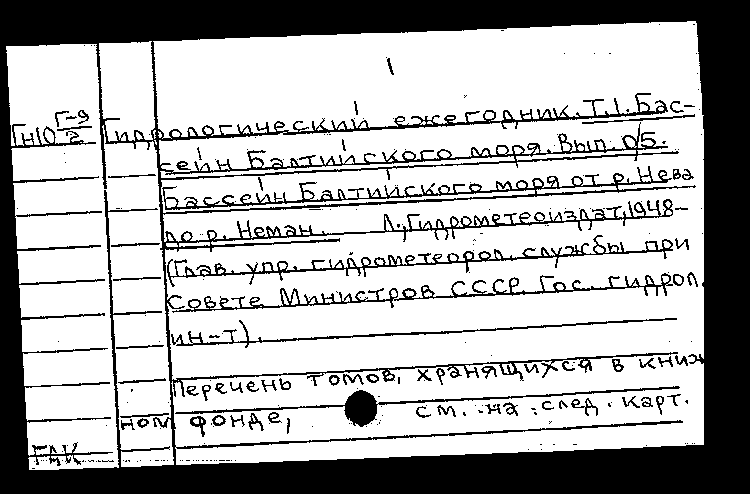 1
Гн10 Г-9/2 Гидрологический ежегодник. Т.1. Бас-
сейн Балтийского моря. Вып. 0/5.
Бассейн Балтийского моря от р. Нева
до р. Неман. Л., Гидрометеоиздат, 1948-
(Глав. упр. гидрометеорол. службы при
Совете Министров СССР. Гос. гидрол.
ин-т).
Перечень томов, хранящихся в книж
ном фонде, см. на след. карт.
ГАК